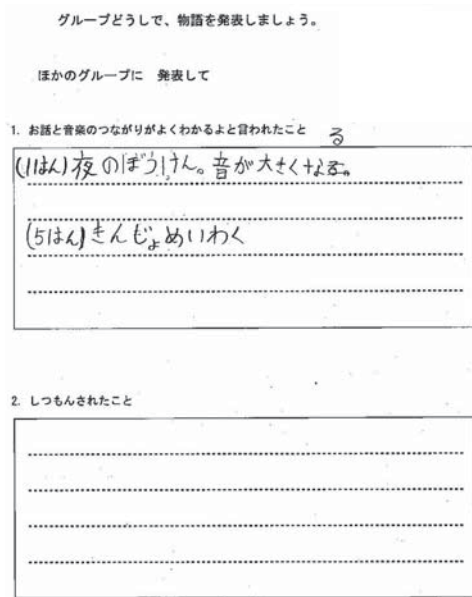 グループどうしで、物語を発表しましょう。
ほかのグループに 発表して
1. お話と音楽のつながりがよくわかるよと言われたこと
る
(1はん)夜のぼうけん。音が大きくなる。
(5はん)きんじょめいわく
2. しつもんされたこと